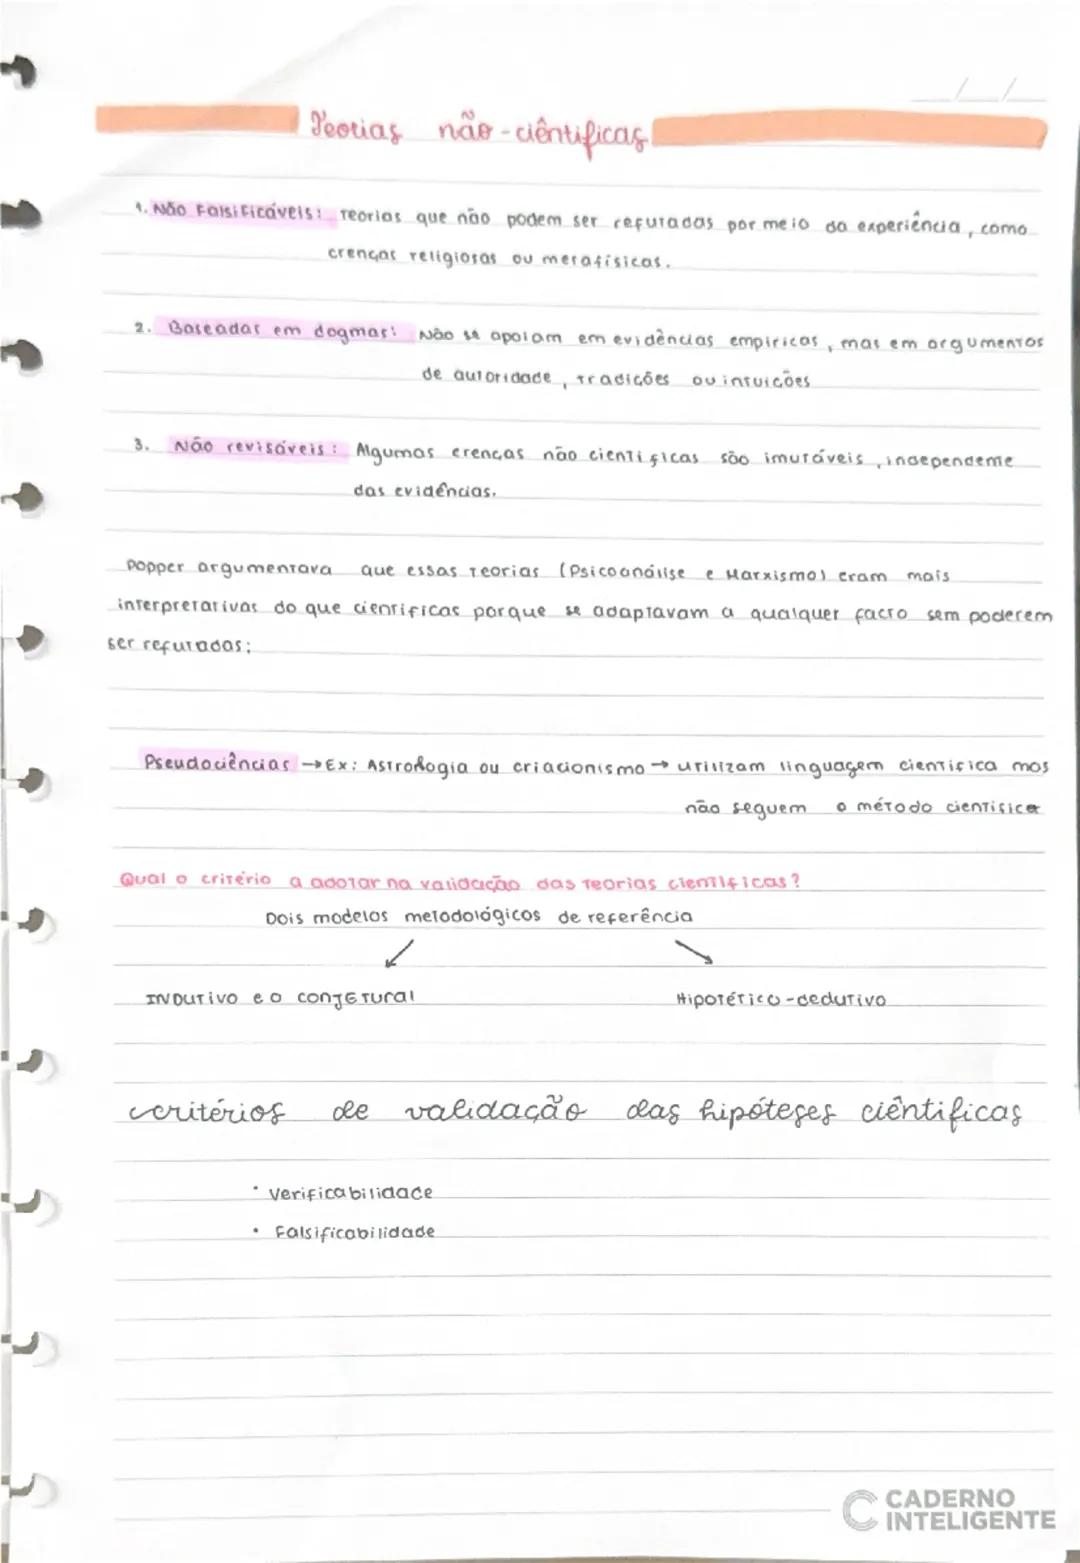 Teorias não-ciêntificas
1. Não Falsificáveis: Teorias que não podem ser refutadas por meio da experiência, como
crenças religiosas ou metafísicas.
2. Baseadas em dogmas: Não se apoiam em evidências empíricas, mas em argumentos
de autoridade, tradições ou intuições
3. Não revisáveis: Algumas crenças não cientificas são imutáveis, independente
das evidências.
Popper argumentava que essas teorias (Psicoanálise e Marxismo) eram mais
interpretativas do que cientificas porque se adaptavam a qualquer facto sem poderem
ser refutadas;
Pseudociências → Ex: Astrologia ou criacionismo → utilizam linguagem cientifica mas
não seguem o método cientifico
Qual o critério a adotar na validação das teorias cientificas?
Dois modelos metodológicos de referência
INDUTIVO e o conjetural
Hipotético-dedutivo
critérios de validação das hipóteses ciêntificas
• Verificabilidade
• Falsificabilidade
CADERNO
INTELIGENTE